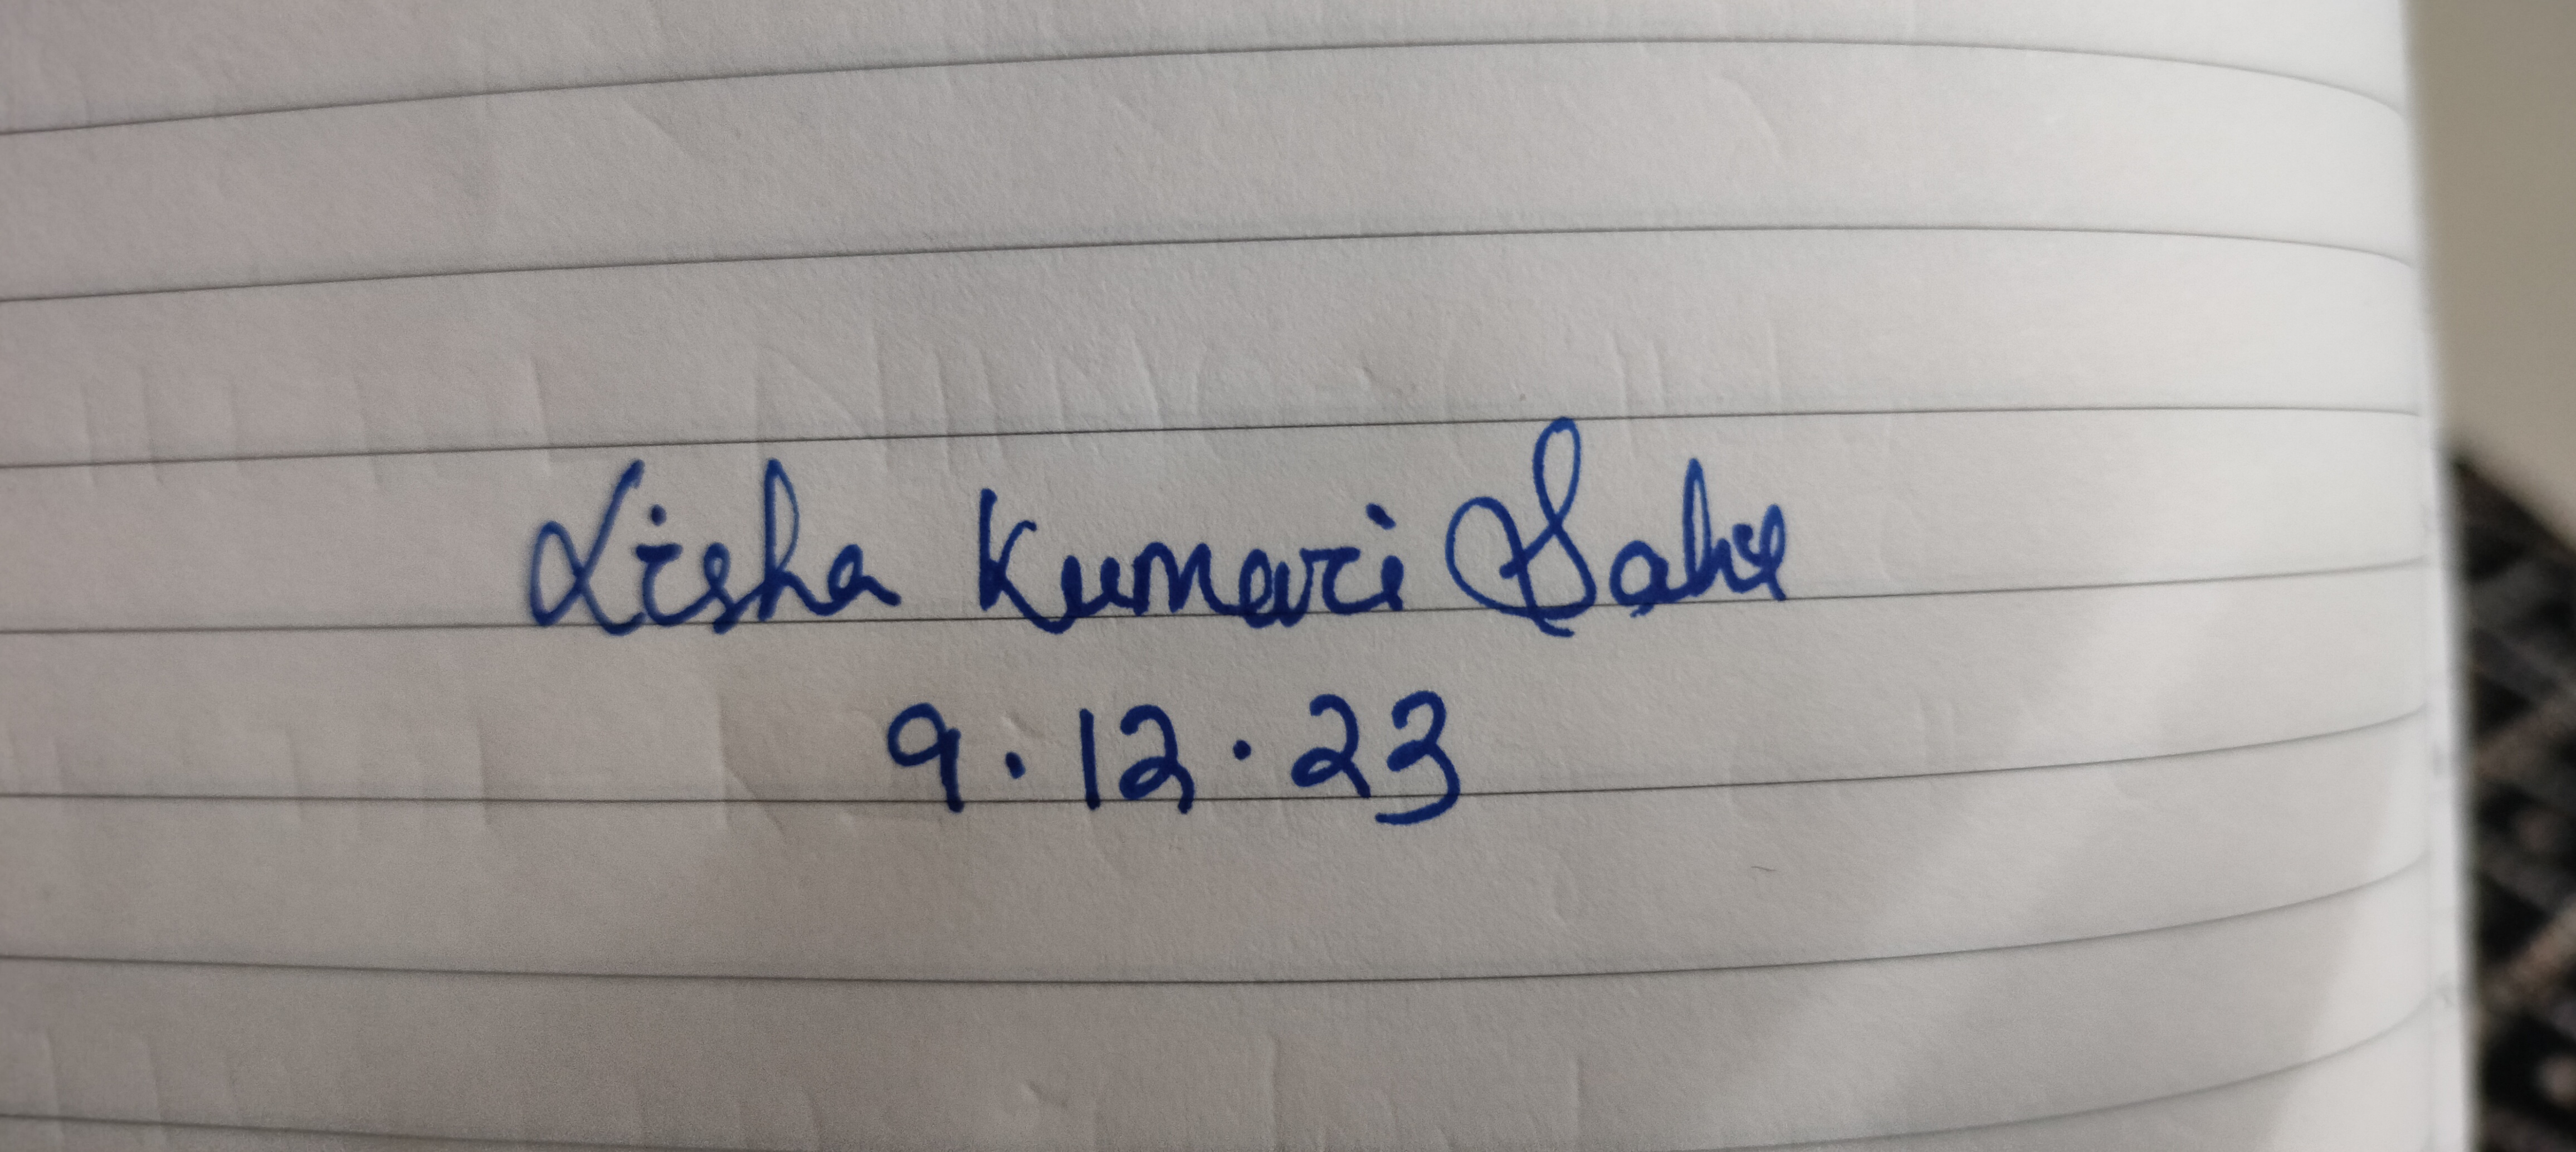 Lisha Kumari Sahu
9.12.23